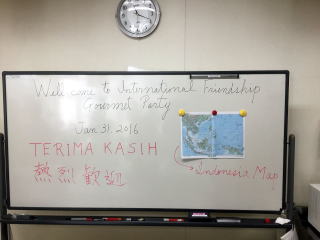 Well come to International Friendship
Gourmet Party
Jan 31. 2016
TERIMA KASIH
熱烈歓迎
Indonesia Map